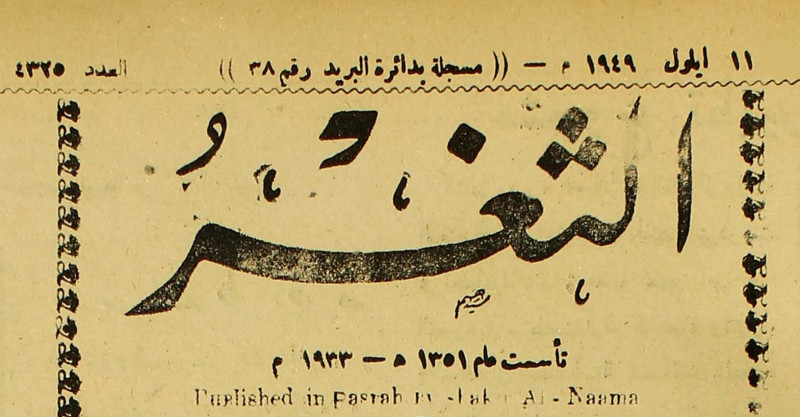 ١١ ايلول ١٩٤٩ م — (( مسجلة بدائرة البريد رقم ٣٨ )) العدد ٤٣٢٥
الثغر
تأسست عام ١٣٥١ ه — ١٩٣٣ م
Published in Basrah Al-Naama